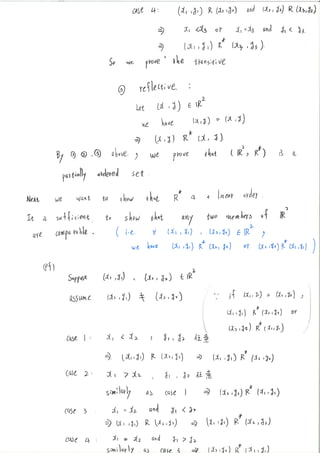 case 4 : (x₁,y₁) R (x₂,y₂) and (x₂,y₂) R (x₃,y₃)
⇒ x₁ < x₃ or x₁ = x₃ and y₁ < y₃
⇒ (x₁,y₁) R* (x₃,y₃).
So we prove the transitive
③ reflective :
Let (x,y) ∈ ℝ²
we have (x,y) = (x,y)
⇒ (x,y) R* (x,y)
By ① ② ③ above, we prove that (ℝ², R*) is a
partially ordered set.
Next we want to show that R* is a linear order.
It is sufficient to show that any two members of ℝ²
are comparable. ( i.e. ∀ (x₁,y₁), (x₂,y₂) ∈ ℝ²,
we have (x₁,y₁) R* (x₂,y₂) or (x₂,y₂) R* (x₁,y₁) )
(pf)
Suppose (x₁,y₁), (x₂,y₂) ∈ ℝ²
assume (x₁,y₁) ≠ (x₂,y₂) ( ∵ if (x₁,y₁) = (x₂,y₂),
(x₁,y₁) R* (x₂,y₂) or
(x₂,y₂) R* (x₁,y₁) )
case 1 : x₁ < x₂ , y₁, y₂ 任意
⇒ (x₁,y₁) R (x₂,y₂) ⇒ (x₁,y₁) R* (x₂,y₂)
case 2 : x₁ > x₂ , y₁, y₂ 任意
similarly as case 1 ⇒ (x₂,y₂) R* (x₁,y₁)
case 3 x₁ = x₂ and y₁ < y₂
⇒ (x₁,y₁) R (x₂,y₂) ⇒ (x₁,y₁) R* (x₂,y₂)
case 4 : x₁ = x₂ and y₁ > y₂
similarly as case 3 ⇒ (x₂,y₂) R* (x₁,y₁)